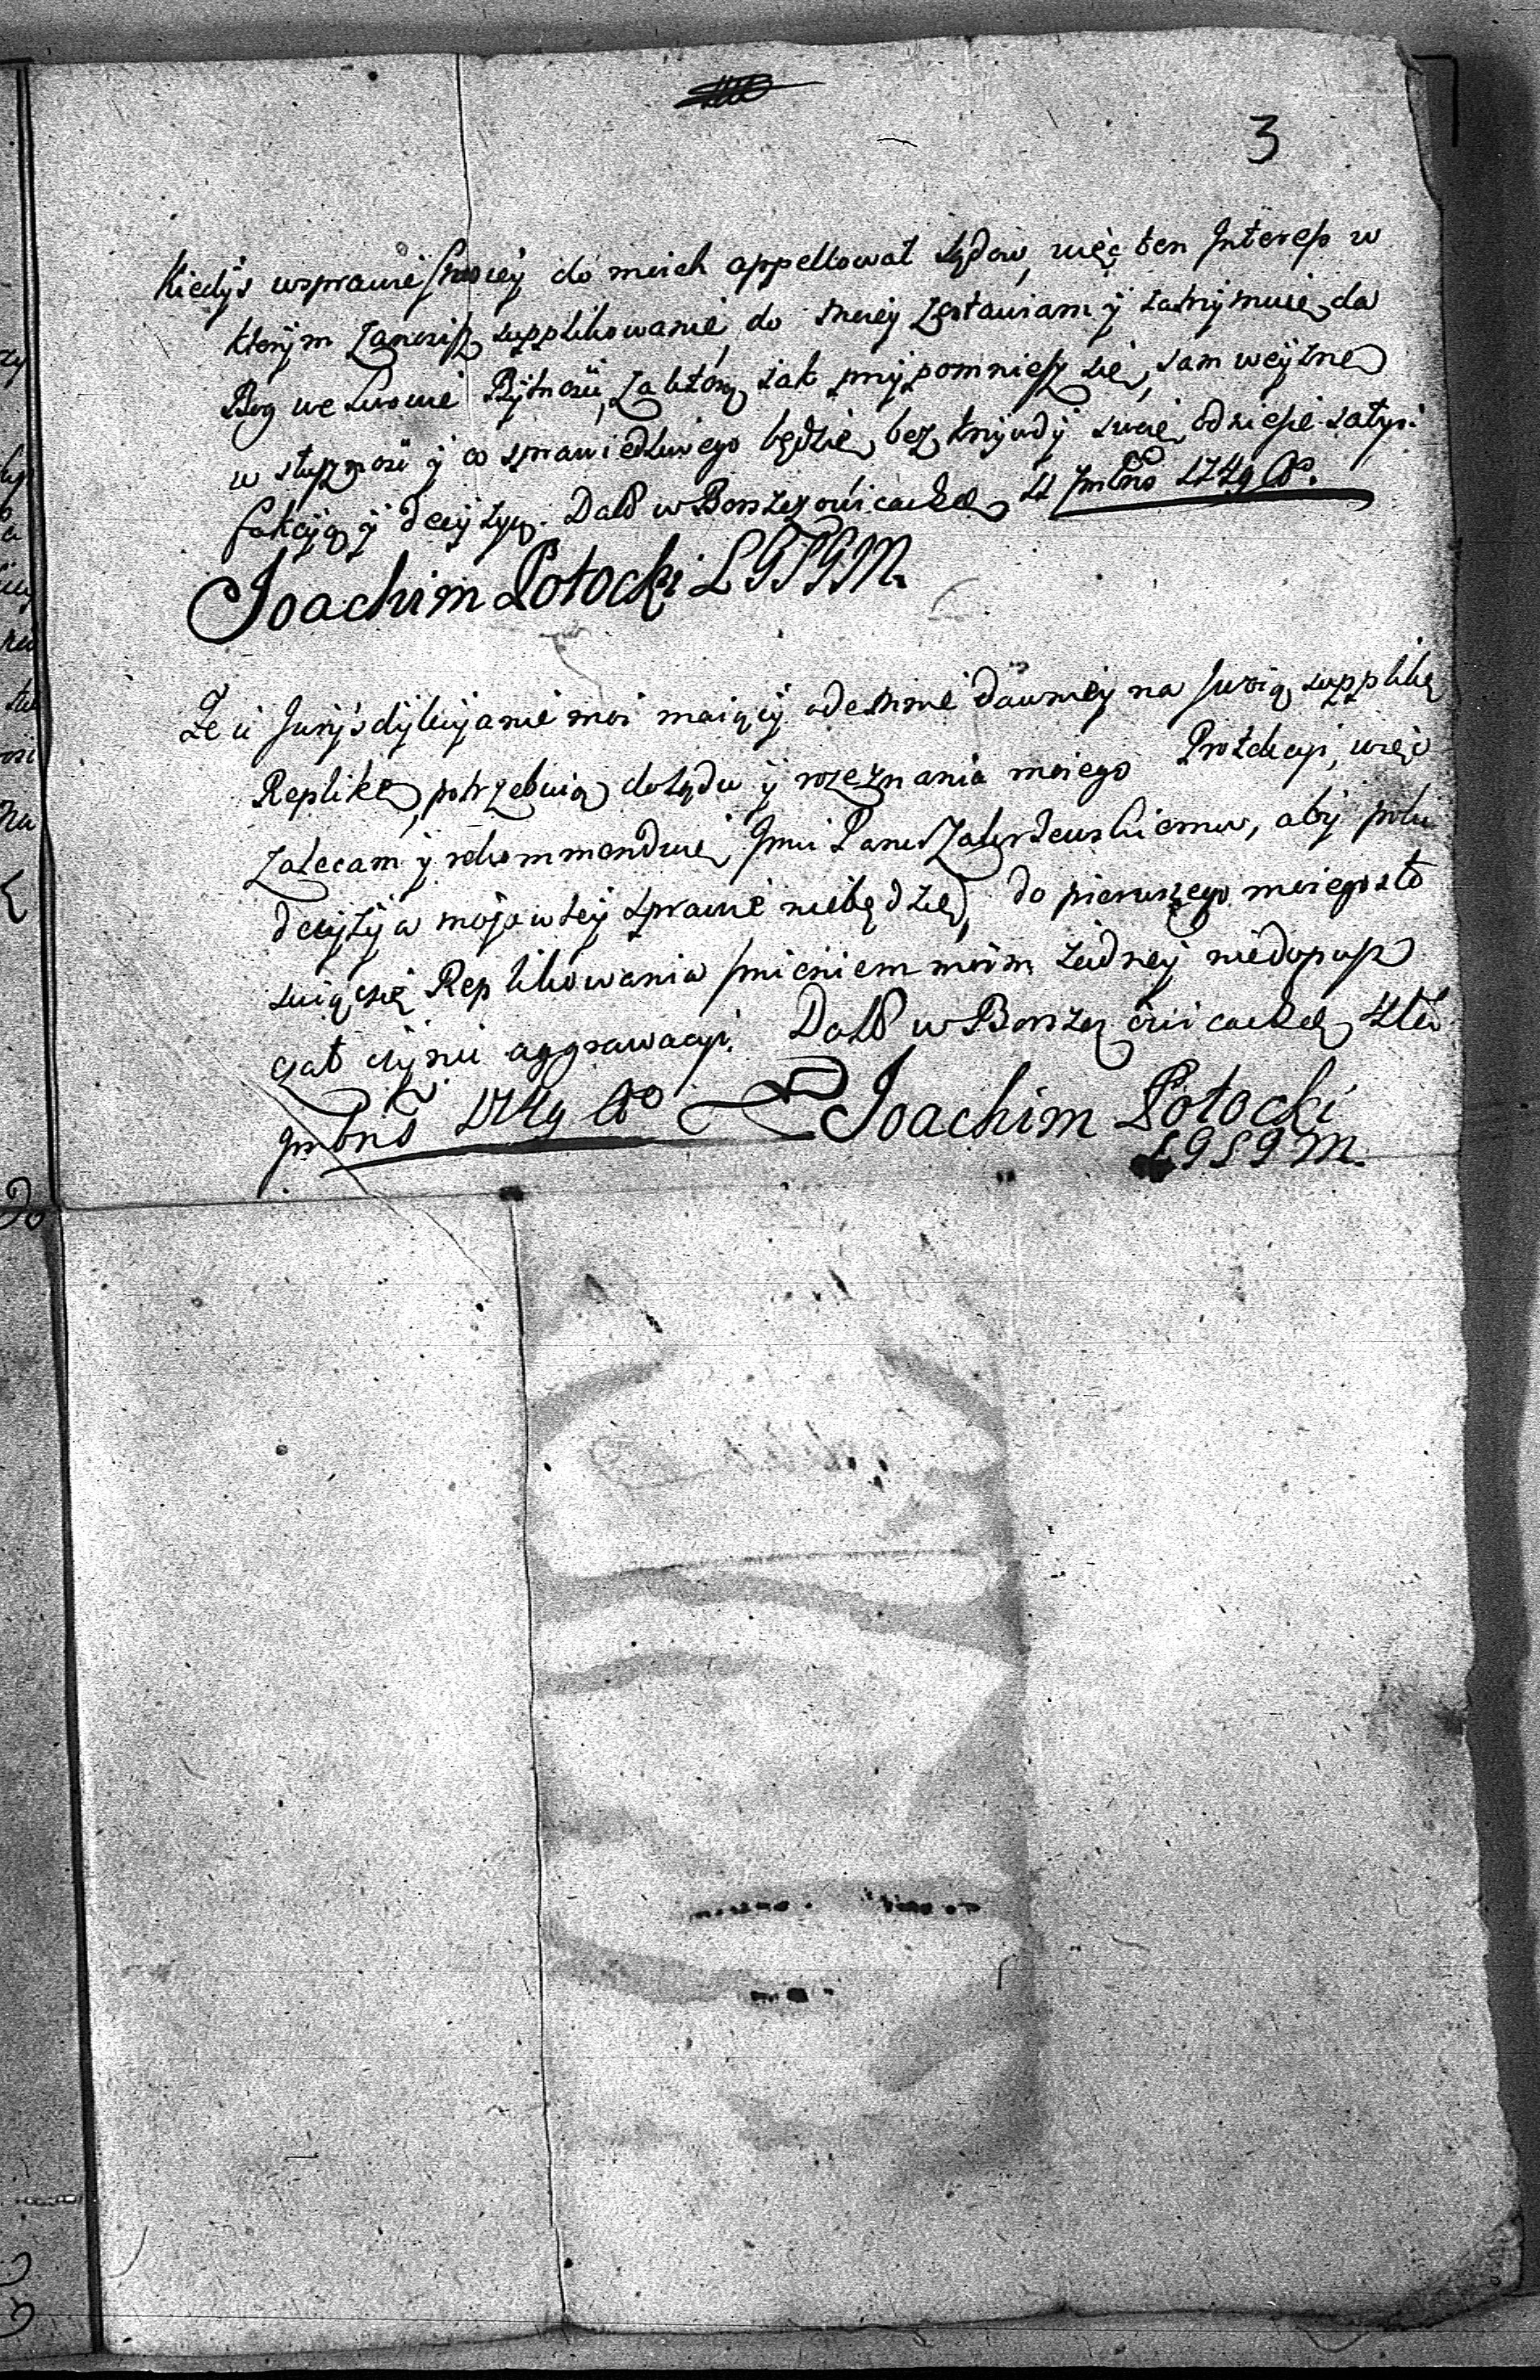 3
Kiedyś wsprawie swoiey do moich appellował sądow, więc ten Interess w
ktorym zanosisz supplikowanie, do mniey zostawiam y zatrzymuię, da
Bog we Lwowie Bytności, za ktorą iak przypomniesz się, sam weyznę
w słuszność y co sprawiedliwego będzie, bez krzywdy swoię odniesie satys:
fakcyją y decyzyą. Datt w Borszczowicach 11 1749
Joachim Potocki
Że ci Jurysdykcyanie moi maiący odemnie dawniey na swoią supplikę
Replikę, potrzebuią dosądu y rozeznania moiego Protekcyi, więc
zalecam y rekommenduię Jmci Panu Zakrzewskiemu, aby poku
decyzyja moja w tey sprawie niebędzie, do pierwszego moiego sto
suiąc się Replikowania imieniem moim żadney niedopusz
czał czynić aggrawacyi. Datt w Borszczowicach
1749 Joachim Potocki